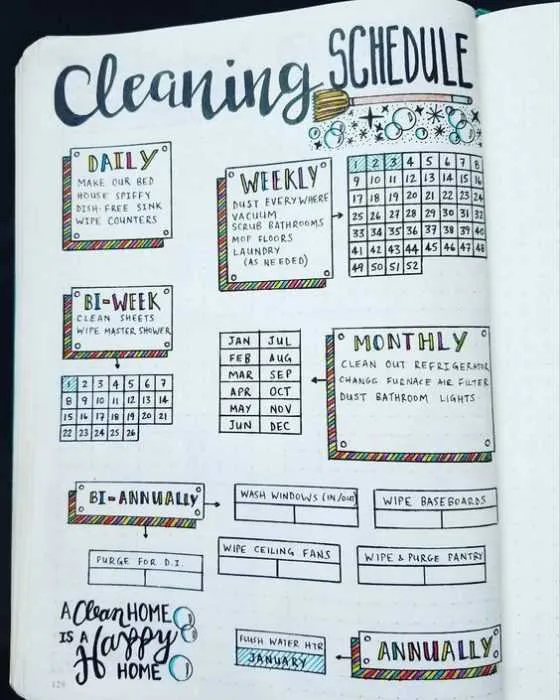 Cleaning SCHEDULE
DAILY
MAKE OUR BED
HOUSE SPIFFY
DISH-FREE SINK
WIPE COUNTERS
WEEKLY
DUST EVERYWHERE
VACUUM
SCRUB BATHROOMS
MOP FLOORS
LAUNDRY
(AS NEEDED)
1 2 3 4 5 6 7 8
9 10 11 12 13 14 15 16
17 18 19 20 21 22 23 24
25 26 27 28 29 30 31 32
33 34 35 36 37 38 39 40
41 42 43 44 45 46 47 48
49 50 51 52
BI-WEEK
CLEAN SHEETS
WIPE MASTER SHOWER
1 2 3 4 5 6 7
8 9 10 11 12 13 14
15 16 17 18 19 20 21
22 23 24 25 26
JAN JUL
FEB AUG
MAR SEP
APR OCT
MAY NOV
JUN DEC
MONTHLY
CLEAN OUT REFRIGERATOR
CHANGE FURNACE AIR FILTER
DUST BATHROOM LIGHTS
BI-ANNUALLY
WASH WINDOWS (IN/OUT)
WIPE BASEBOARDS
PURGE FOR D.I.
WIPE CEILING FANS
WIPE & PURGE PANTRY
A Clean HOME
IS A Happy
HOME
FLUSH WATER HTR
JANUARY
ANNUALLY
129